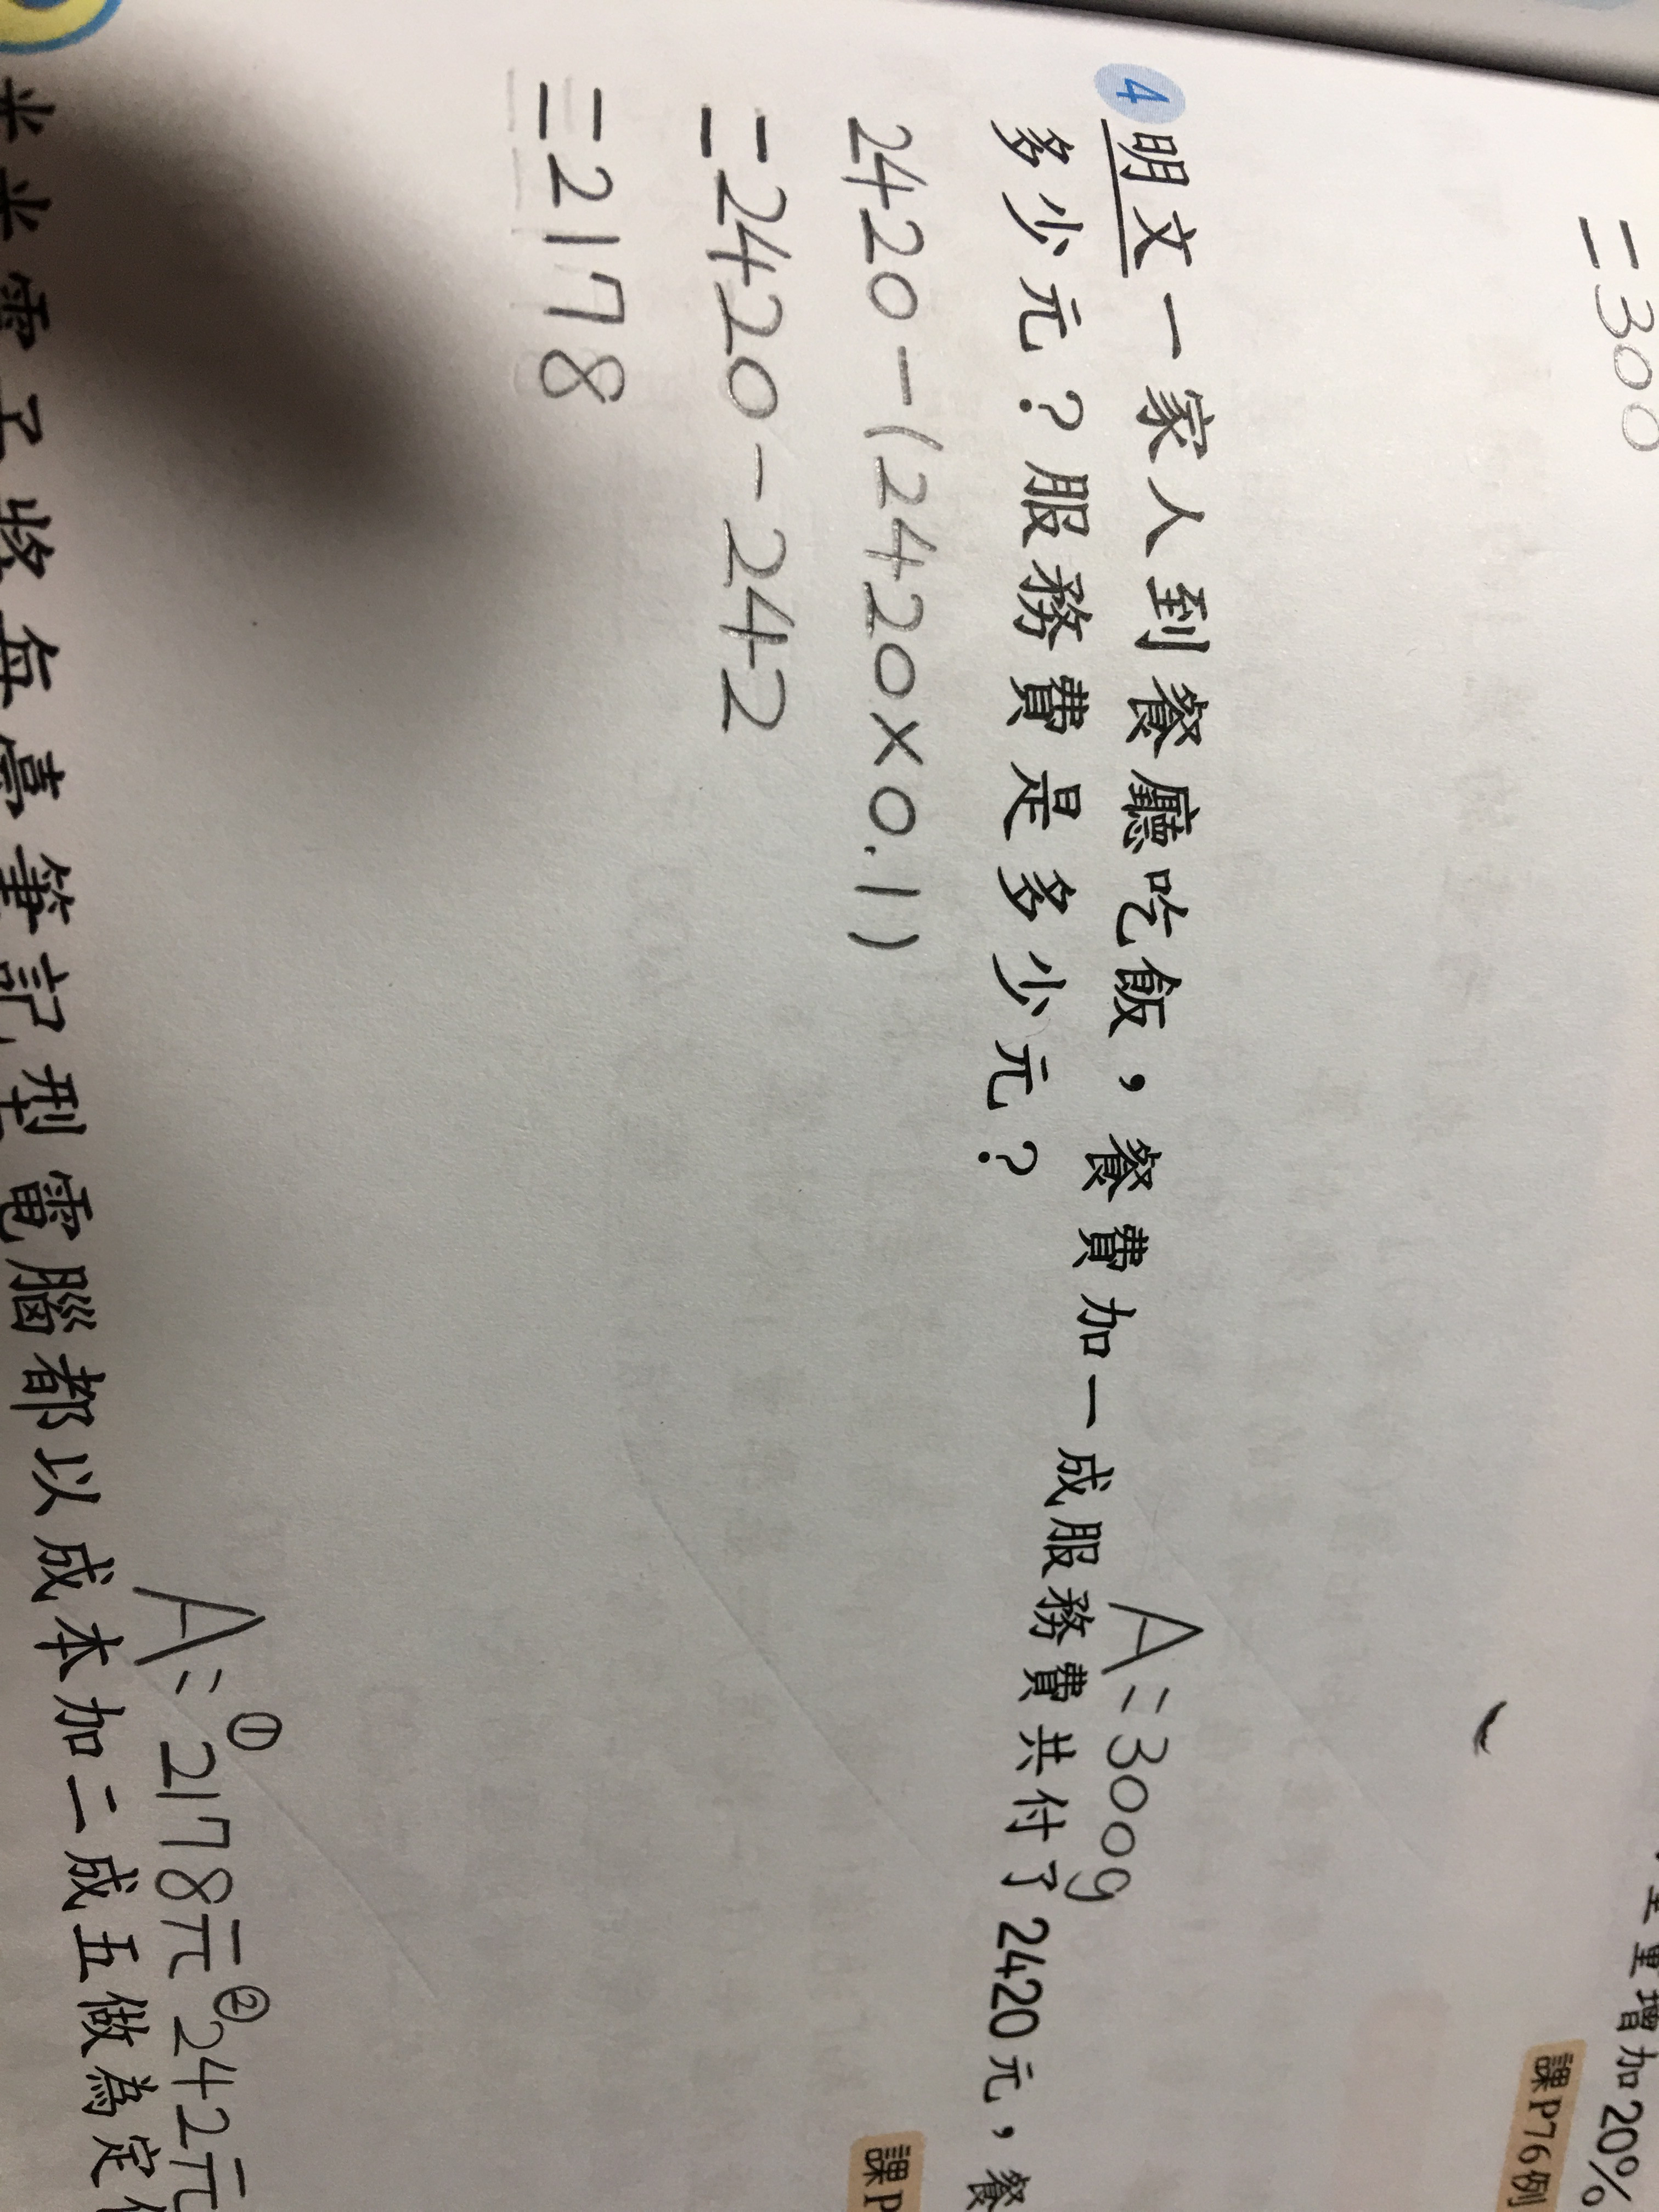 重增加20%
課P76例
=300
A=300g
4 明文一家人到餐廳吃飯，餐費加一成服務費共付了2420元，餐
多少元？服務費是多少元？
課P
2420-(2420×0.1)
=2420-242
=2178
A=①2178元②242元
半電子將每臺筆記型電腦都以成本加二成五做為定